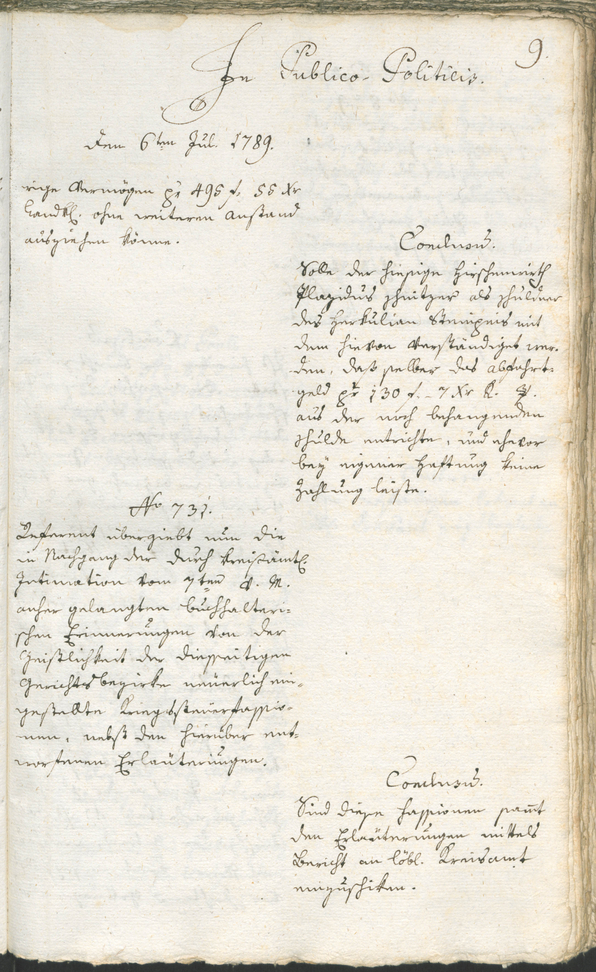 9.
In Publico-Politicis.
Den 6ten Jul. 1789.
rige Vermögen pr 495 f. 55 Xr
ohne weiteren Anstand
ausziehen könne.
Conclusum.
Solle der hiesige Hirschenwirth
Plazidus Schnitzer als Schuldner
des Herkulian mit
dem hievon verständiget wer-
den, daß selber das Abfahrt-
geld pr 130 f. - 7 Xr R. W.
aus der noch behangenden
Schulde entrichte, und ehevor
bey eigener Haftung keine
Zahlung leiste.
No 731.
Referent übergiebt nun die
in Nachgang der durch kreisämtl.
Intimation vom 7ten v. M.
anher gelangten buchhalteri-
schen Erinnerungen von der
Geistlichkeit der diesseitigen
Gerichtsbezirke neüerlich ein-
gestellte Kriegssteuerfassio-
nen, nebst den hierüber ent-
worfenen Erlaüterungen.
Conclusum.
Sind diese Fassionen samt
den Erlaüterungen mittels
Bericht an löbl. Kreisamt
einzuschiken.